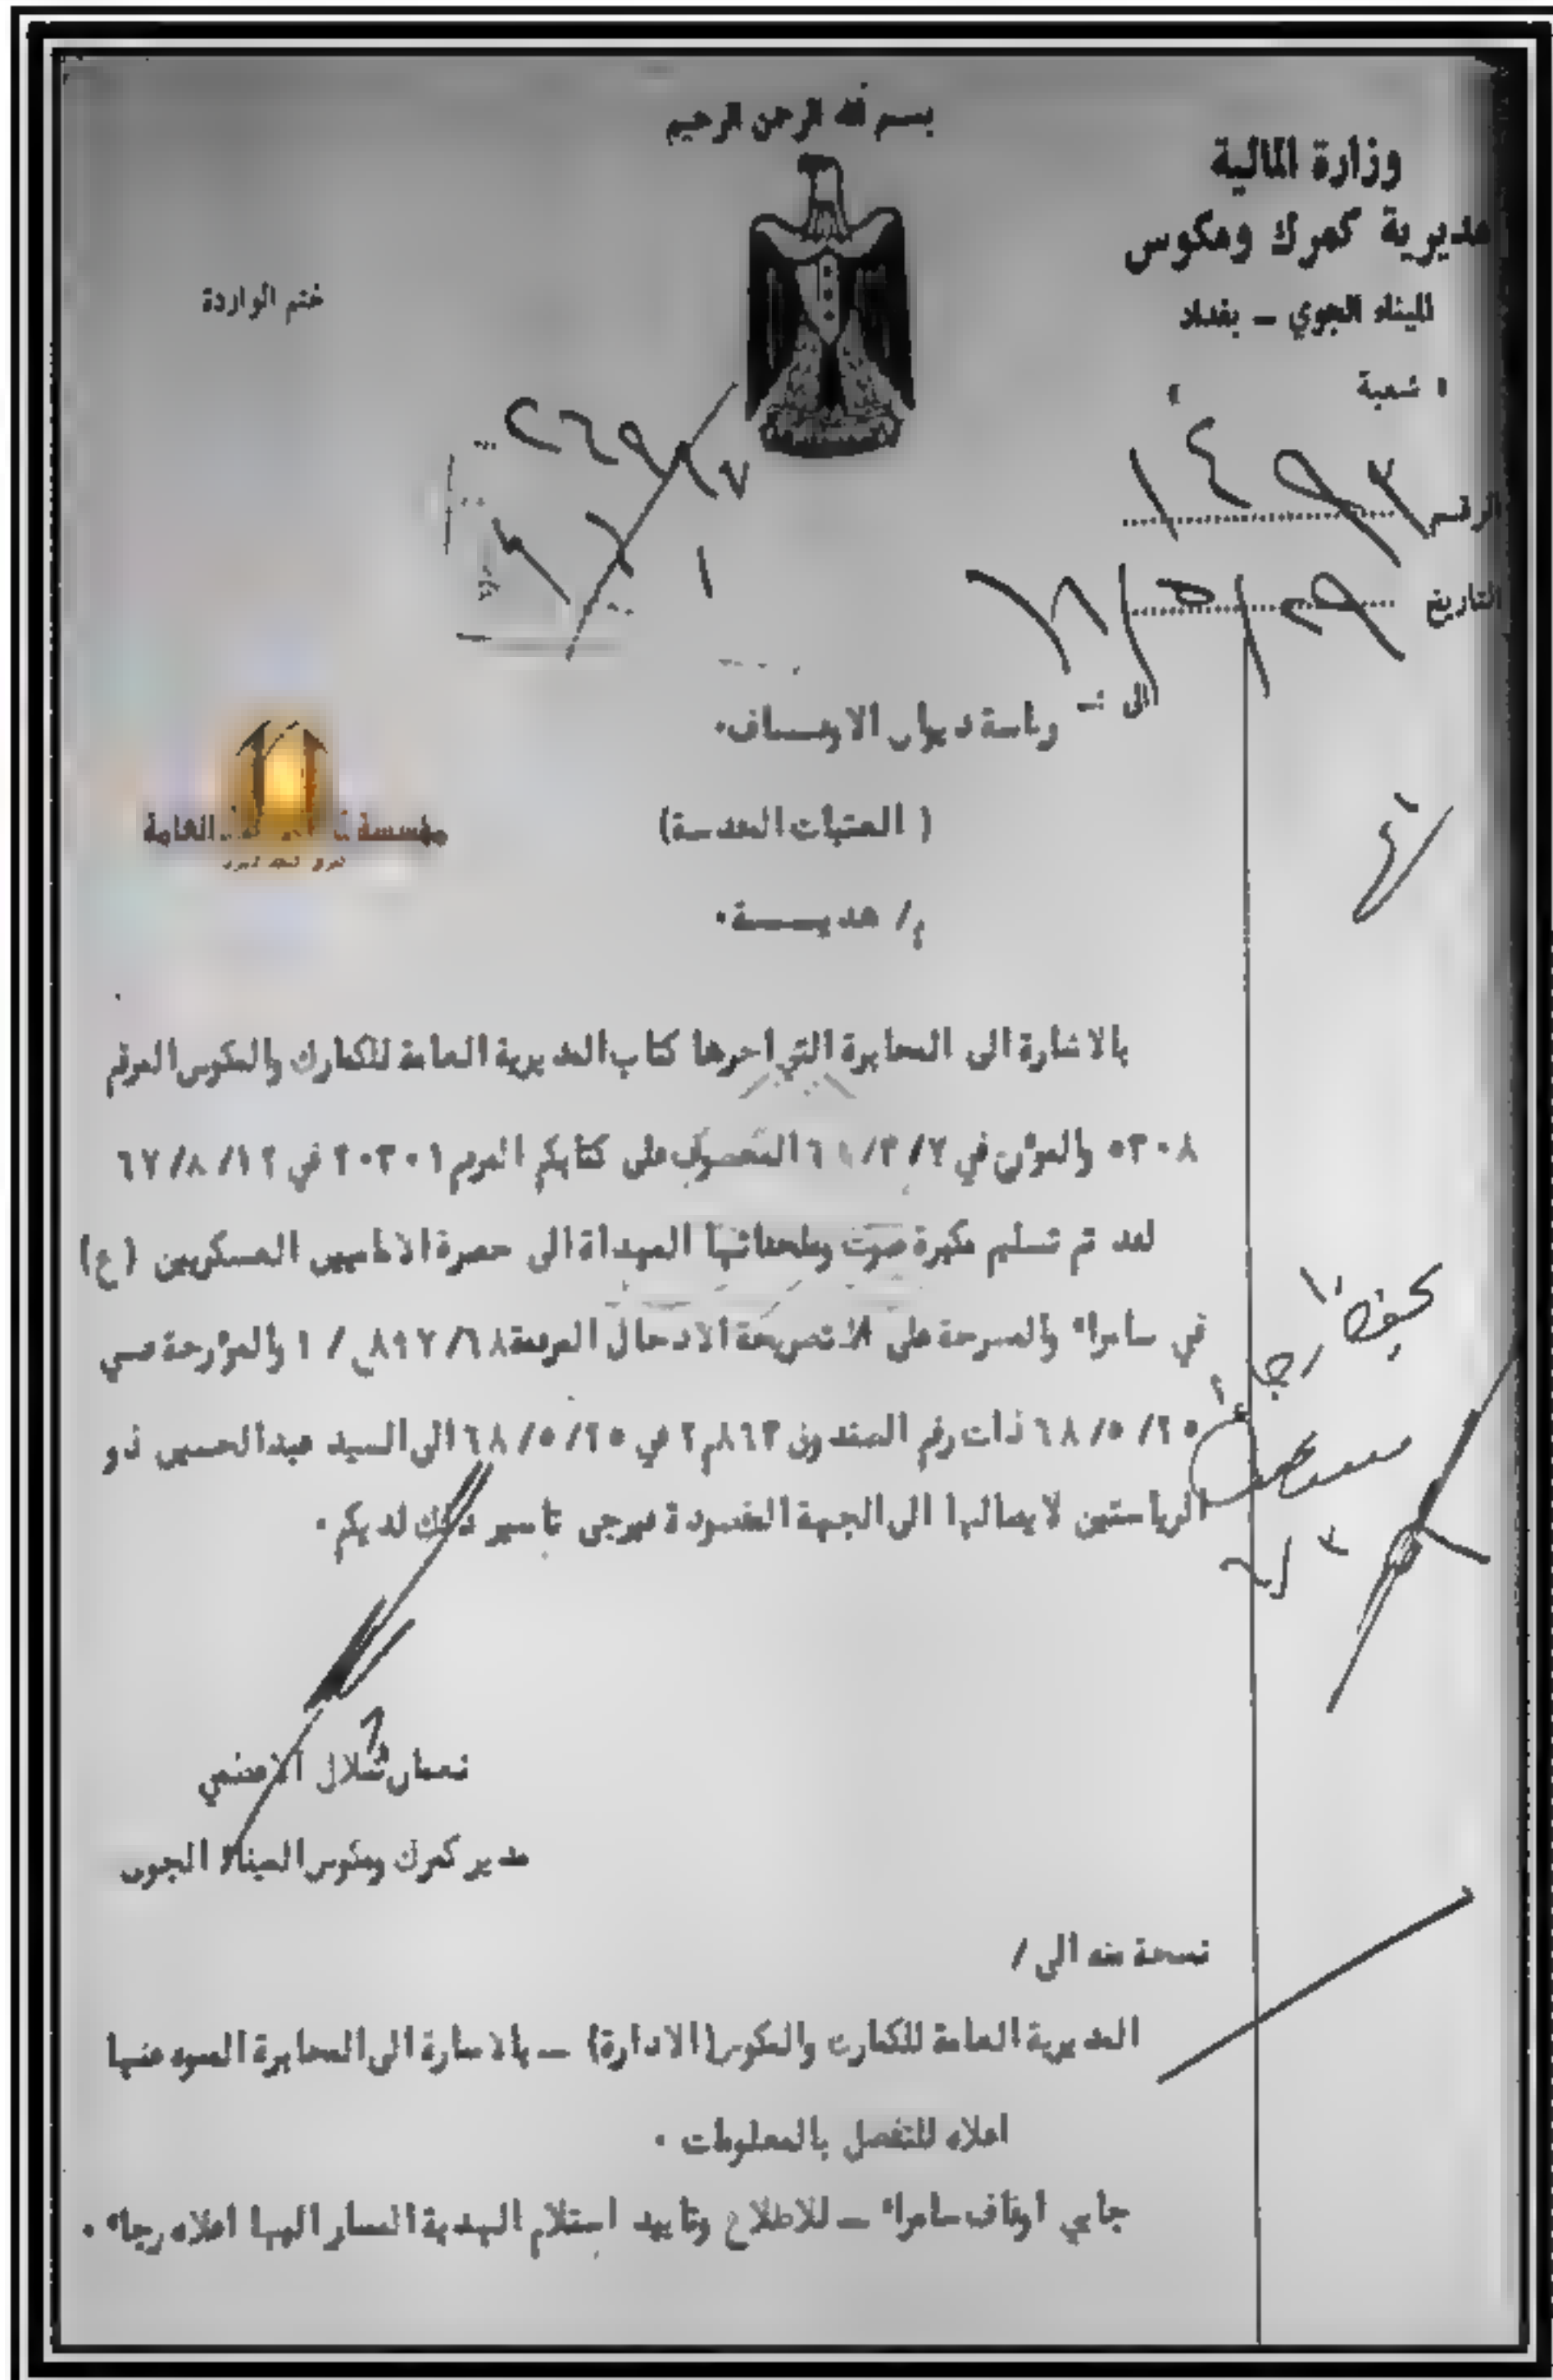 بسم الله الرحمن الرحيم
وزارة المالية
مديرية كمرك ومكوس
الميناء الجوي – بغداد
شعبة
ختم الواردة
الرقم ١٤٩٣
التاريخ ٢٩/٥/٦٨
الى :- رئاسة ديوان الاوقـــاف٠
( العتبات المقدسة)
م/ هديـــــة٠
بالاشارة الى المخابرة التي اخرها كتاب المديرية العامة للكمارك والمكوس المرقم
٥٣٠٨ والمؤرخ في ٧/ ٣/ على كتابكم المرقم ٢٠٣٠١ في ١٢/ ٨/ ٦٧
لقد تم تسليم مكبرة صوت وملحقاتها المهداة الى حضرة الامامين العسكريين (ع)
في سامراء والمسرحة على التصريحة الادخال المرقمة ٨٩٢/٦٨ / ١ والمؤرخة في
٢٥ /٥/ ٦٨ ذات رقم الصندوق ٨٦٣م٢ في ٢٥/ ٥/ ٦٨ الى السيد عبدالحسين ذو
الرياستين لايصالها الى الجهة المقصودة فيرجى تاسير ذلك لديكم ٠
نعمان شلال الاعظمي
مدير كمرك ومكوس الميناء الجوي
نسخة منه الى /
المديرية العامة للكمارك والمكوس(الادارة) – بالاشارة الى المخابرة المنوه عنها
اعلاه للتفضل بالمعلومات ٠
جابي اوقاف سامراء – للاطلاع وتاييد استلام الهدية المشار اليها اعلاه رجاء ٠